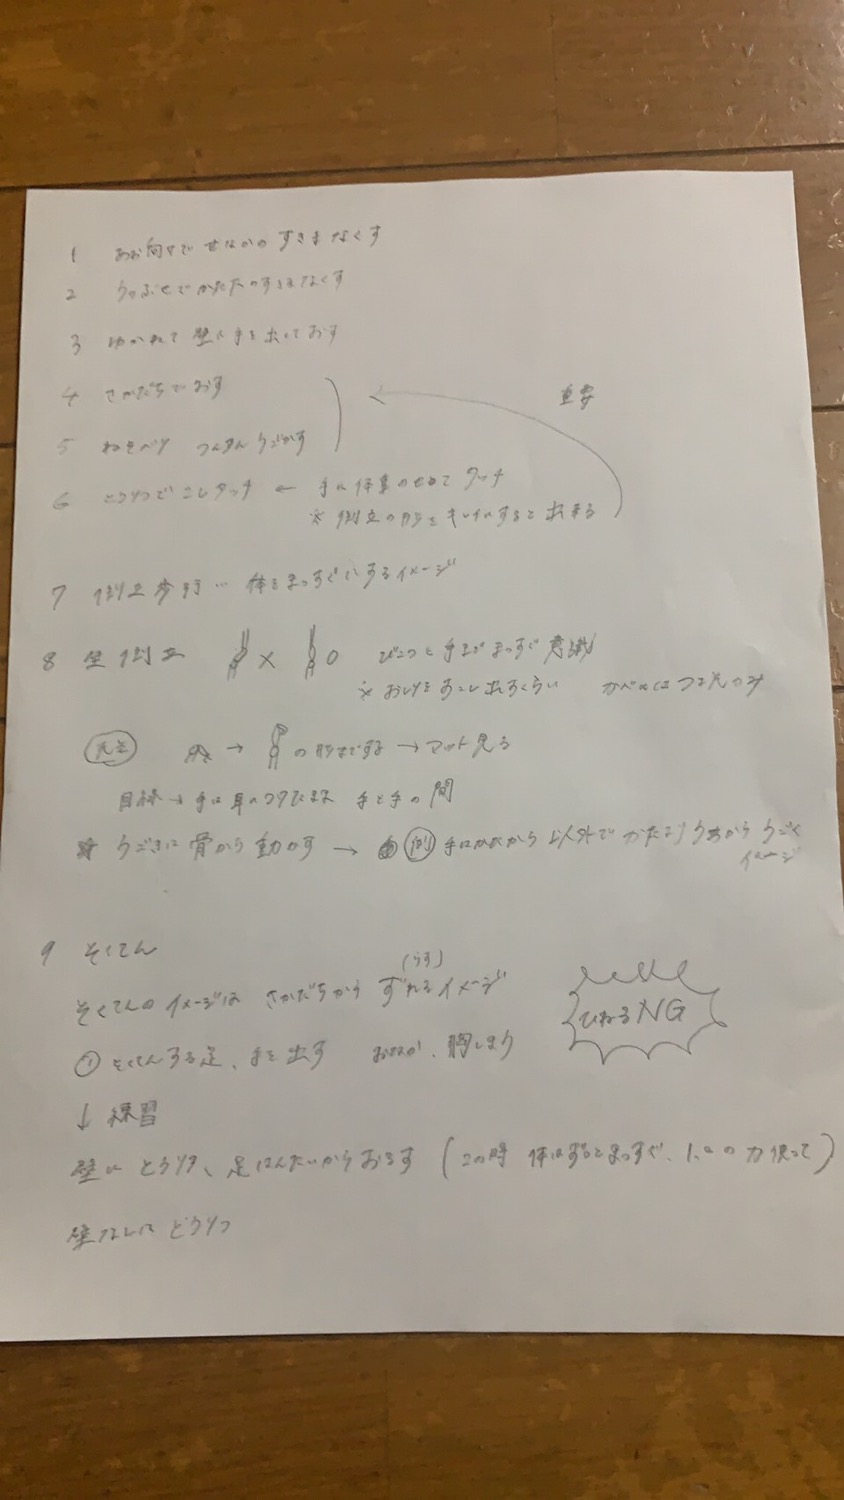 1 あお向けで せなかの すきまなくす
2 うつぶせで かたの すきまなくす
3 壁に手を出っておす
4 さかだちでおす
5 ねそべり うごかす
重要
6 とうりつで こしタッチ ← 手に体重のせて タッチ
※ 倒立の形をキレイにすると出来る
7 倒立歩行… 体をまっすぐにするイメージ
8 壁倒立 × ○ ぴーんと手までまっすぐ意識
※ おしりをすこし出すくらい かべには つま先のみ
→ の形までする → マット見る
目線 → 手は耳につけたまま 手と手の間
うごきは 骨から動かす → 例 手はかたから 以外で かたよりうちから うごく
イメージ
9 そくてん
そくてんのイメージは さかだちから ずれるイメージ
ひねるNG
① そくてんする足、手を出す おなか、胸しまり
↓ 練習
壁に とうりつ、足はんたいからおろす (この時 体はずっとまっすぐ、の力使って)
壁なしに とうりつ